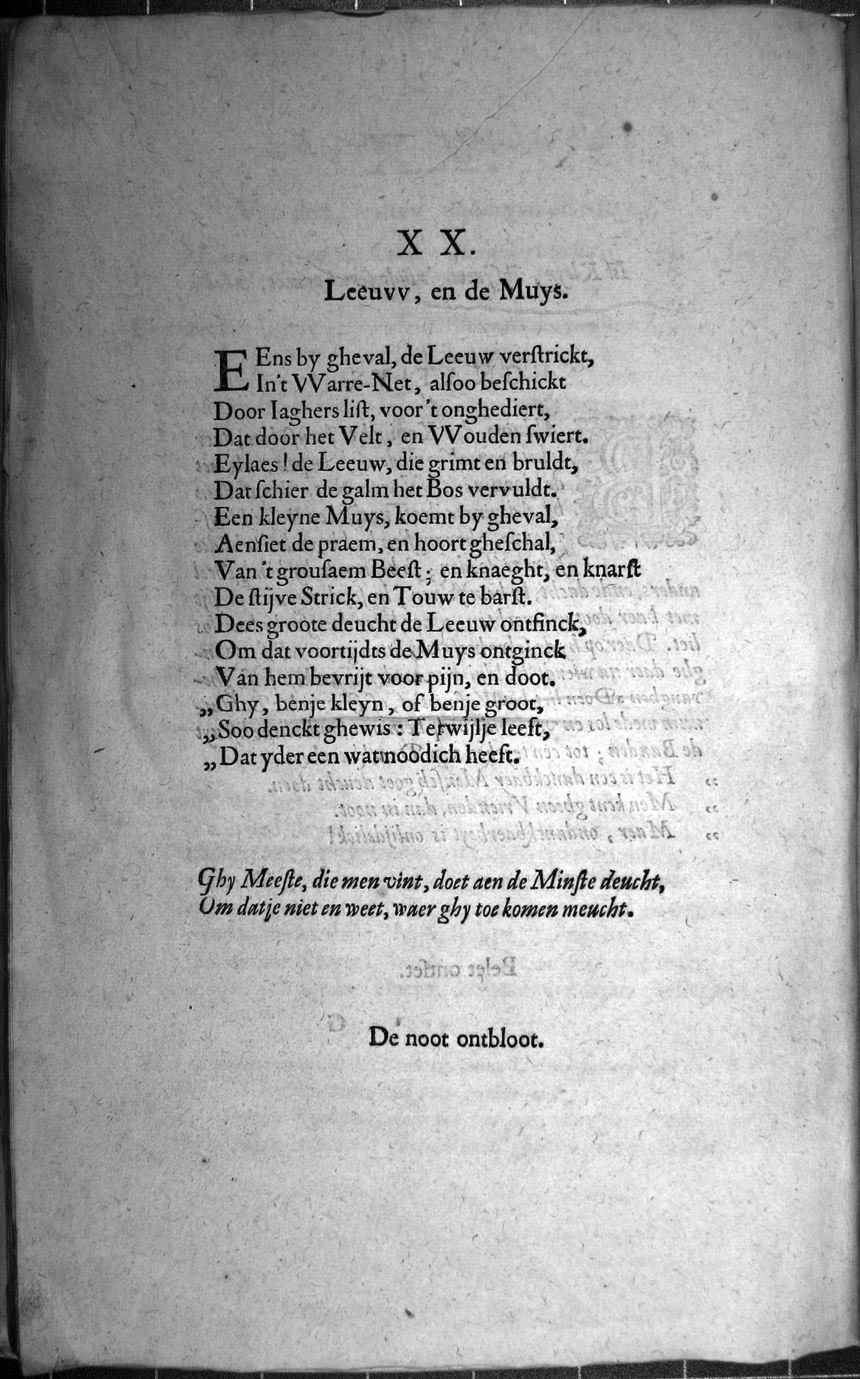 X X.
Leeuvv, en de Muys.
EEns by gheval, de Leeuw verſtrickt,
In't VVarre-Net, alſoo beſchickt
Door Iaghers liſt, voor 't onghediert,
Dat door het Velt, en VVouden ſwiert.
Eylaes! de Leeuw, die grimt en bruldt,
Dat ſchier de galm het Bos vervuldt.
Een kleyne Muys, koemt by gheval,
Aenſiet de praem, en hoort gheſchal,
Van 't grouſaem Beeſt; en knaeght, en knarſt
De ſtijve Strick, en Touw te barſt.
Dees groote deucht de Leeuw ontfinck,
Om dat voortijdts de Muys ontginck
Van hem bevrijt voor pijn, en doot.
„Ghy, benje kleyn, of benje groot,
„Soo denckt ghewis: Terwijlje leeft,
„Dat yder een wat noodich heeft.
Ghy Meeſte, die men vint, doet aen de Minſte deucht,
Om datje niet en weet, waer ghy toe komen meucht.
De noot ontbloot.